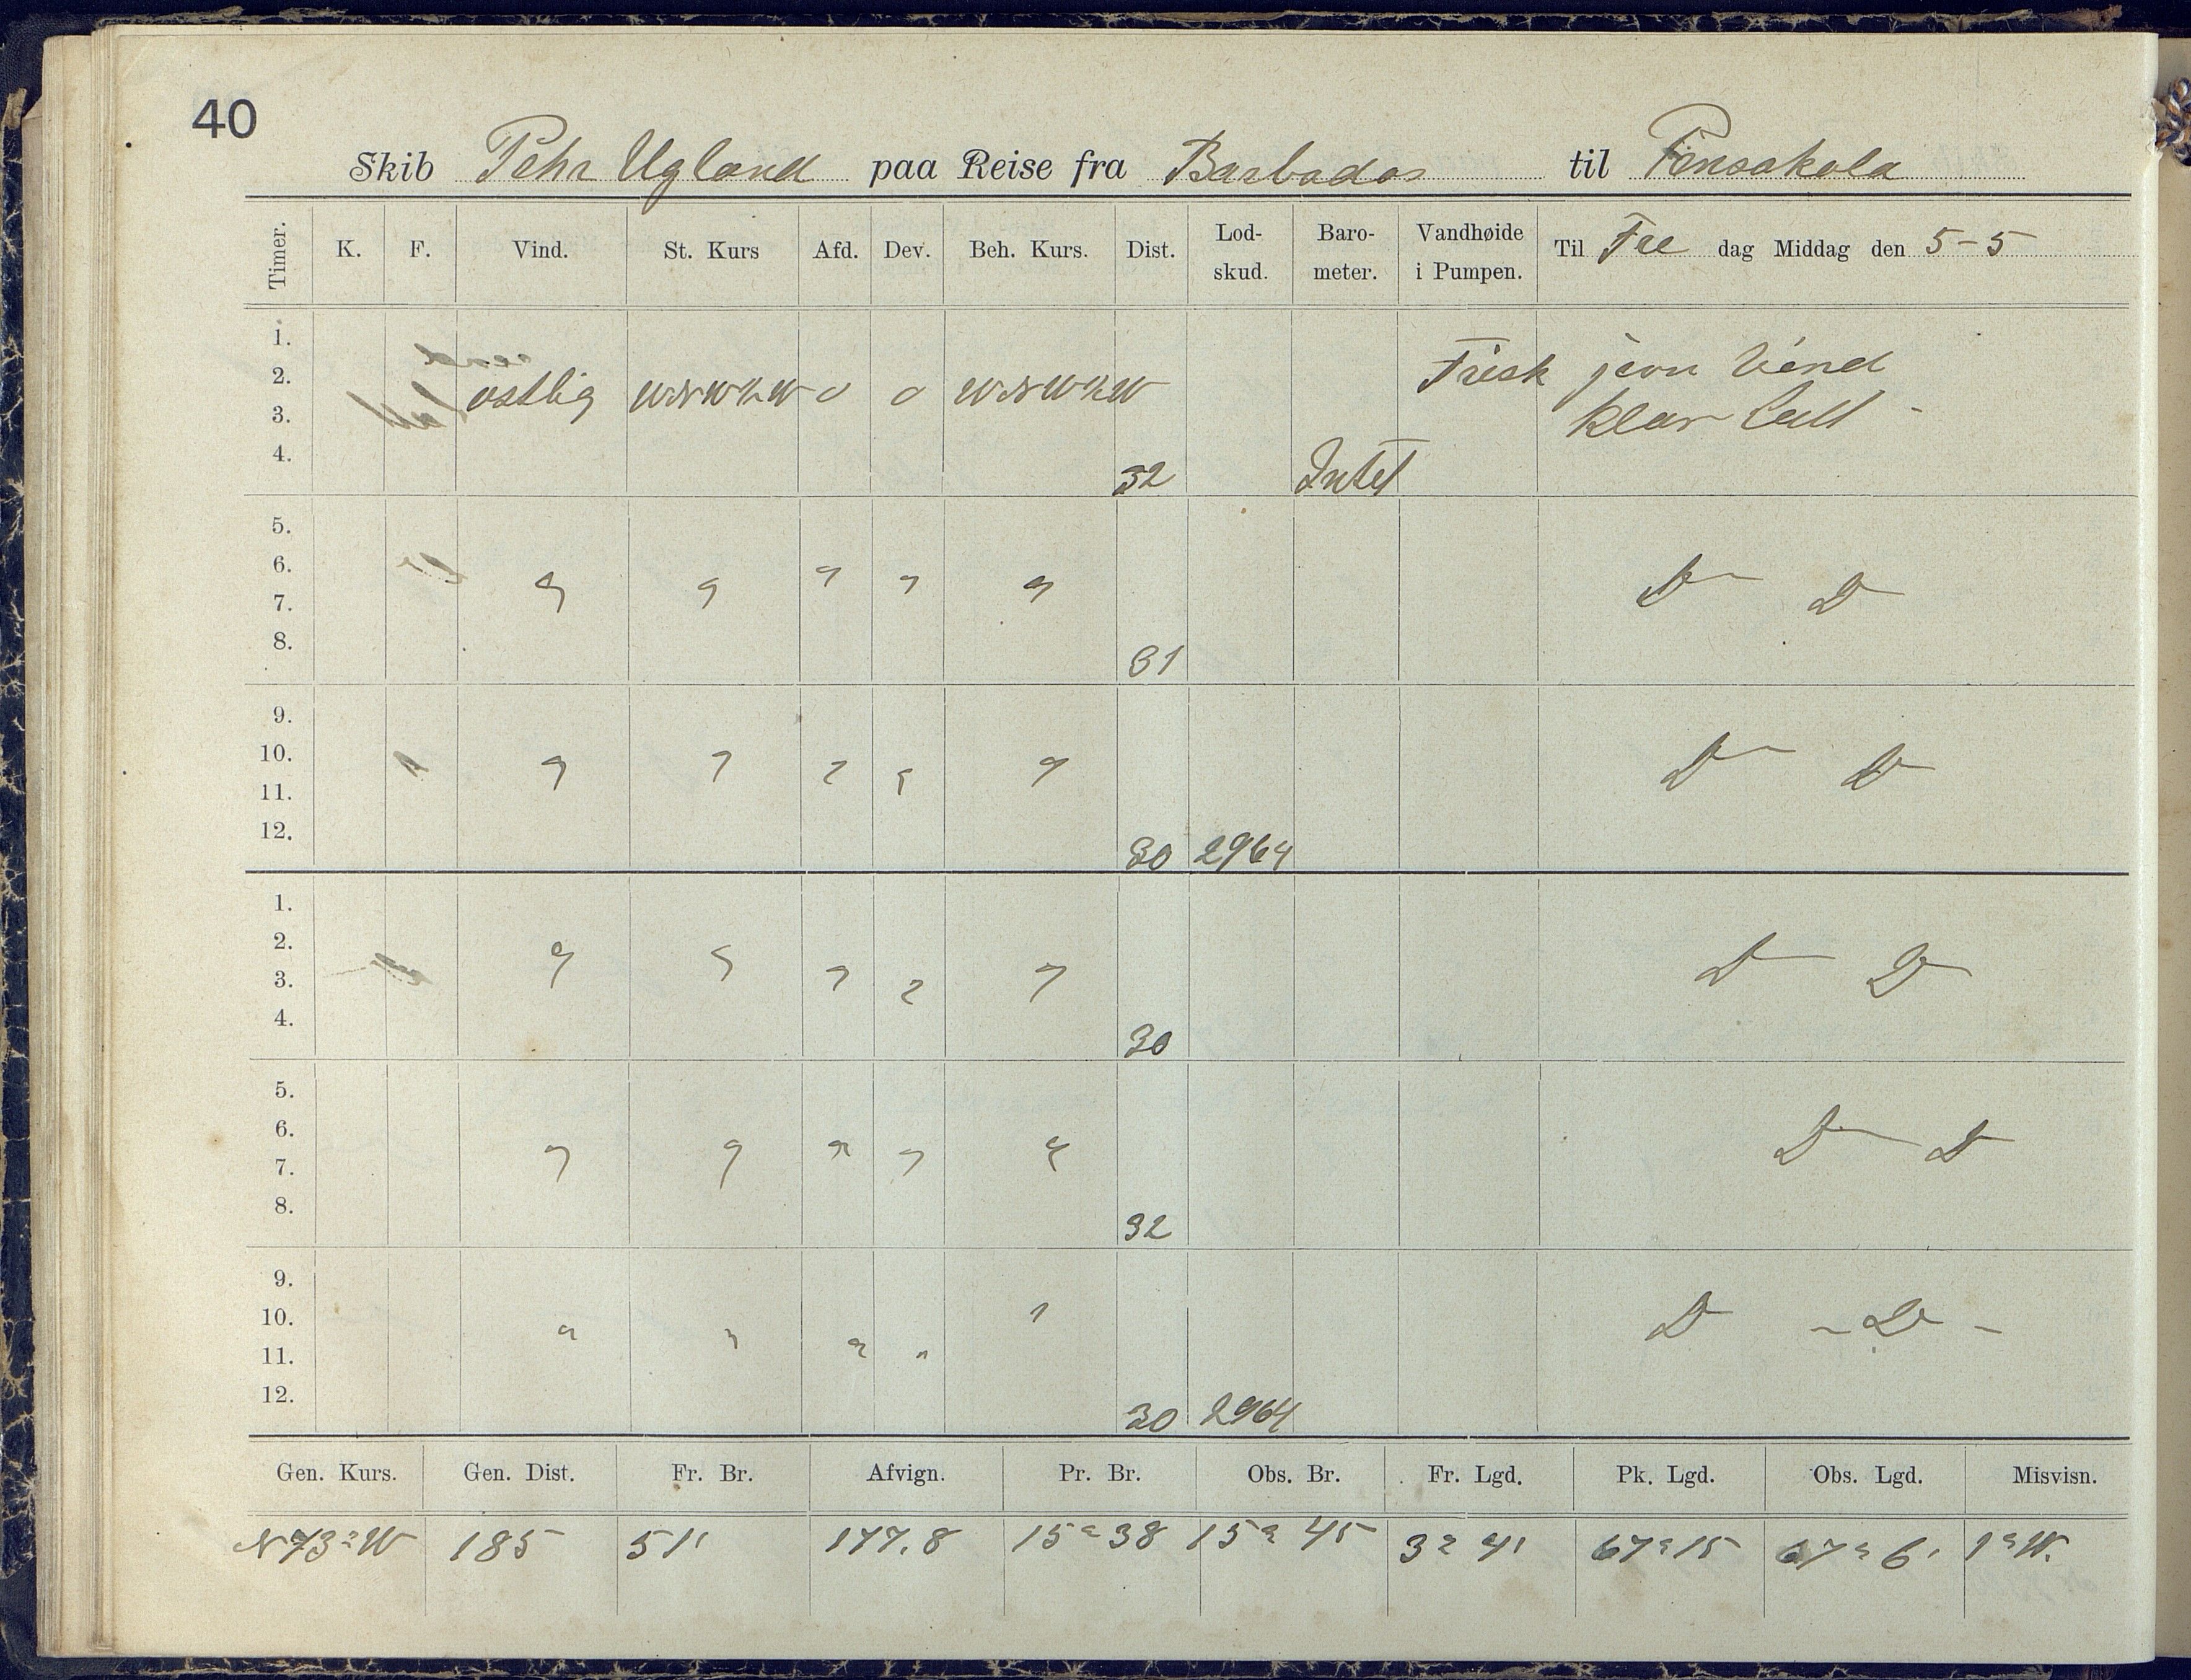 40
Skib Pehr Ugland paa Reise fra Barbados til Pensakola
Timer. K. F. Vind. St. Kurs Afd. Dev. Beh. Kurs. Dist. Lod-skud. Baro-meter. Vandhøide i Pumpen. Til Fre dag Middag den 5-5
1.
2. ostlig WNW½W 0 0 WNW½W Frisk jevn Vind
3. klar Luft -
4. 32 Intet
5.
6. " " " " " D D
7.
8. 31
9.
10. " " " " " D D
11.
12. 30 2964
1.
2. " " " " " D D
3.
4. 30
5.
6. " " " " " D D
7.
8. 32
9.
10. " " " " " D - D -
11.
12. 30 2964
Gen. Kurs. Gen. Dist. Fr. Br. Afvign. Pr. Br. Obs. Br. Fr. Lgd. Pk. Lgd. Obs. Lgd. Misvisn.
N73°W 185 51' 177.8 15°38 15° 45 3° 4' 67°15 67° 6' 1°W.